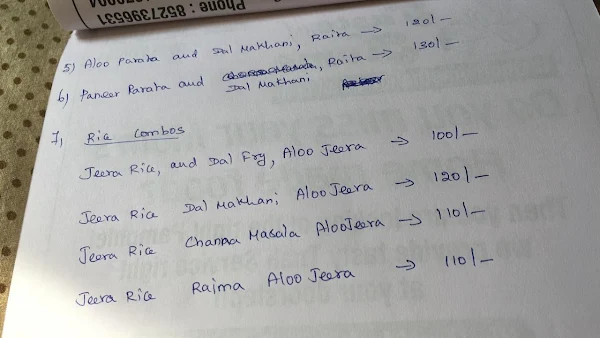 Phone : 8527396531
5) Aloo Parata and Dal Makhani, Raita → 120/-
6) Paneer Parata and Dal Makhani, Raita → 130/-
7, Rice Combos
Jeera Rice, and Dal Fry, Aloo Jeera → 100/-
Jeera Rice Dal Makhani Aloo Jeera → 120/-
Jeera Rice Chanaa Masala Aloo Jeera → 110/-
Jeera Rice Rajma Aloo Jeera → 110/-